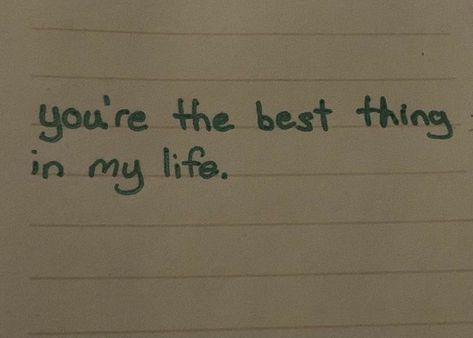 you're the best thing
in my life.